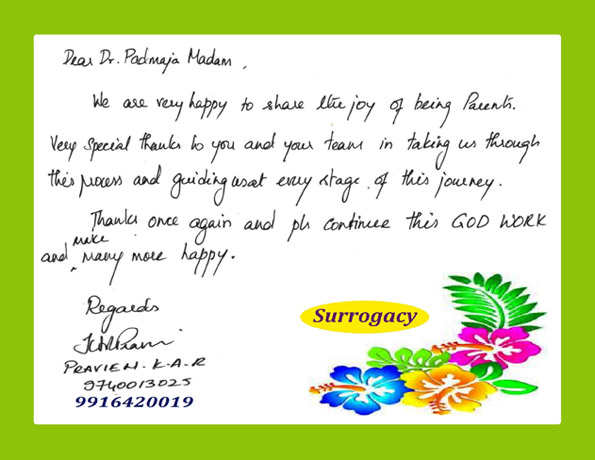 Dear Dr. Padmaja Madam,
We are very happy to share the joy of being Parents.
Very Special thanks to you and your team in taking us through
this process and guiding us at every stage of this journey.
Thanks once again and pls continue this GOD WORK
make
and many more happy.
Regards
PRAVIEN. K.A.R
9740013025
9916420019
Surrogacy